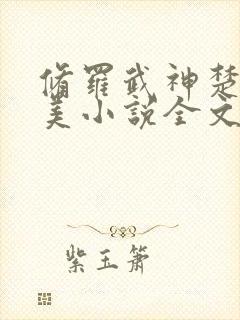 脩羅武神楚
美小說全文
紫玉簫